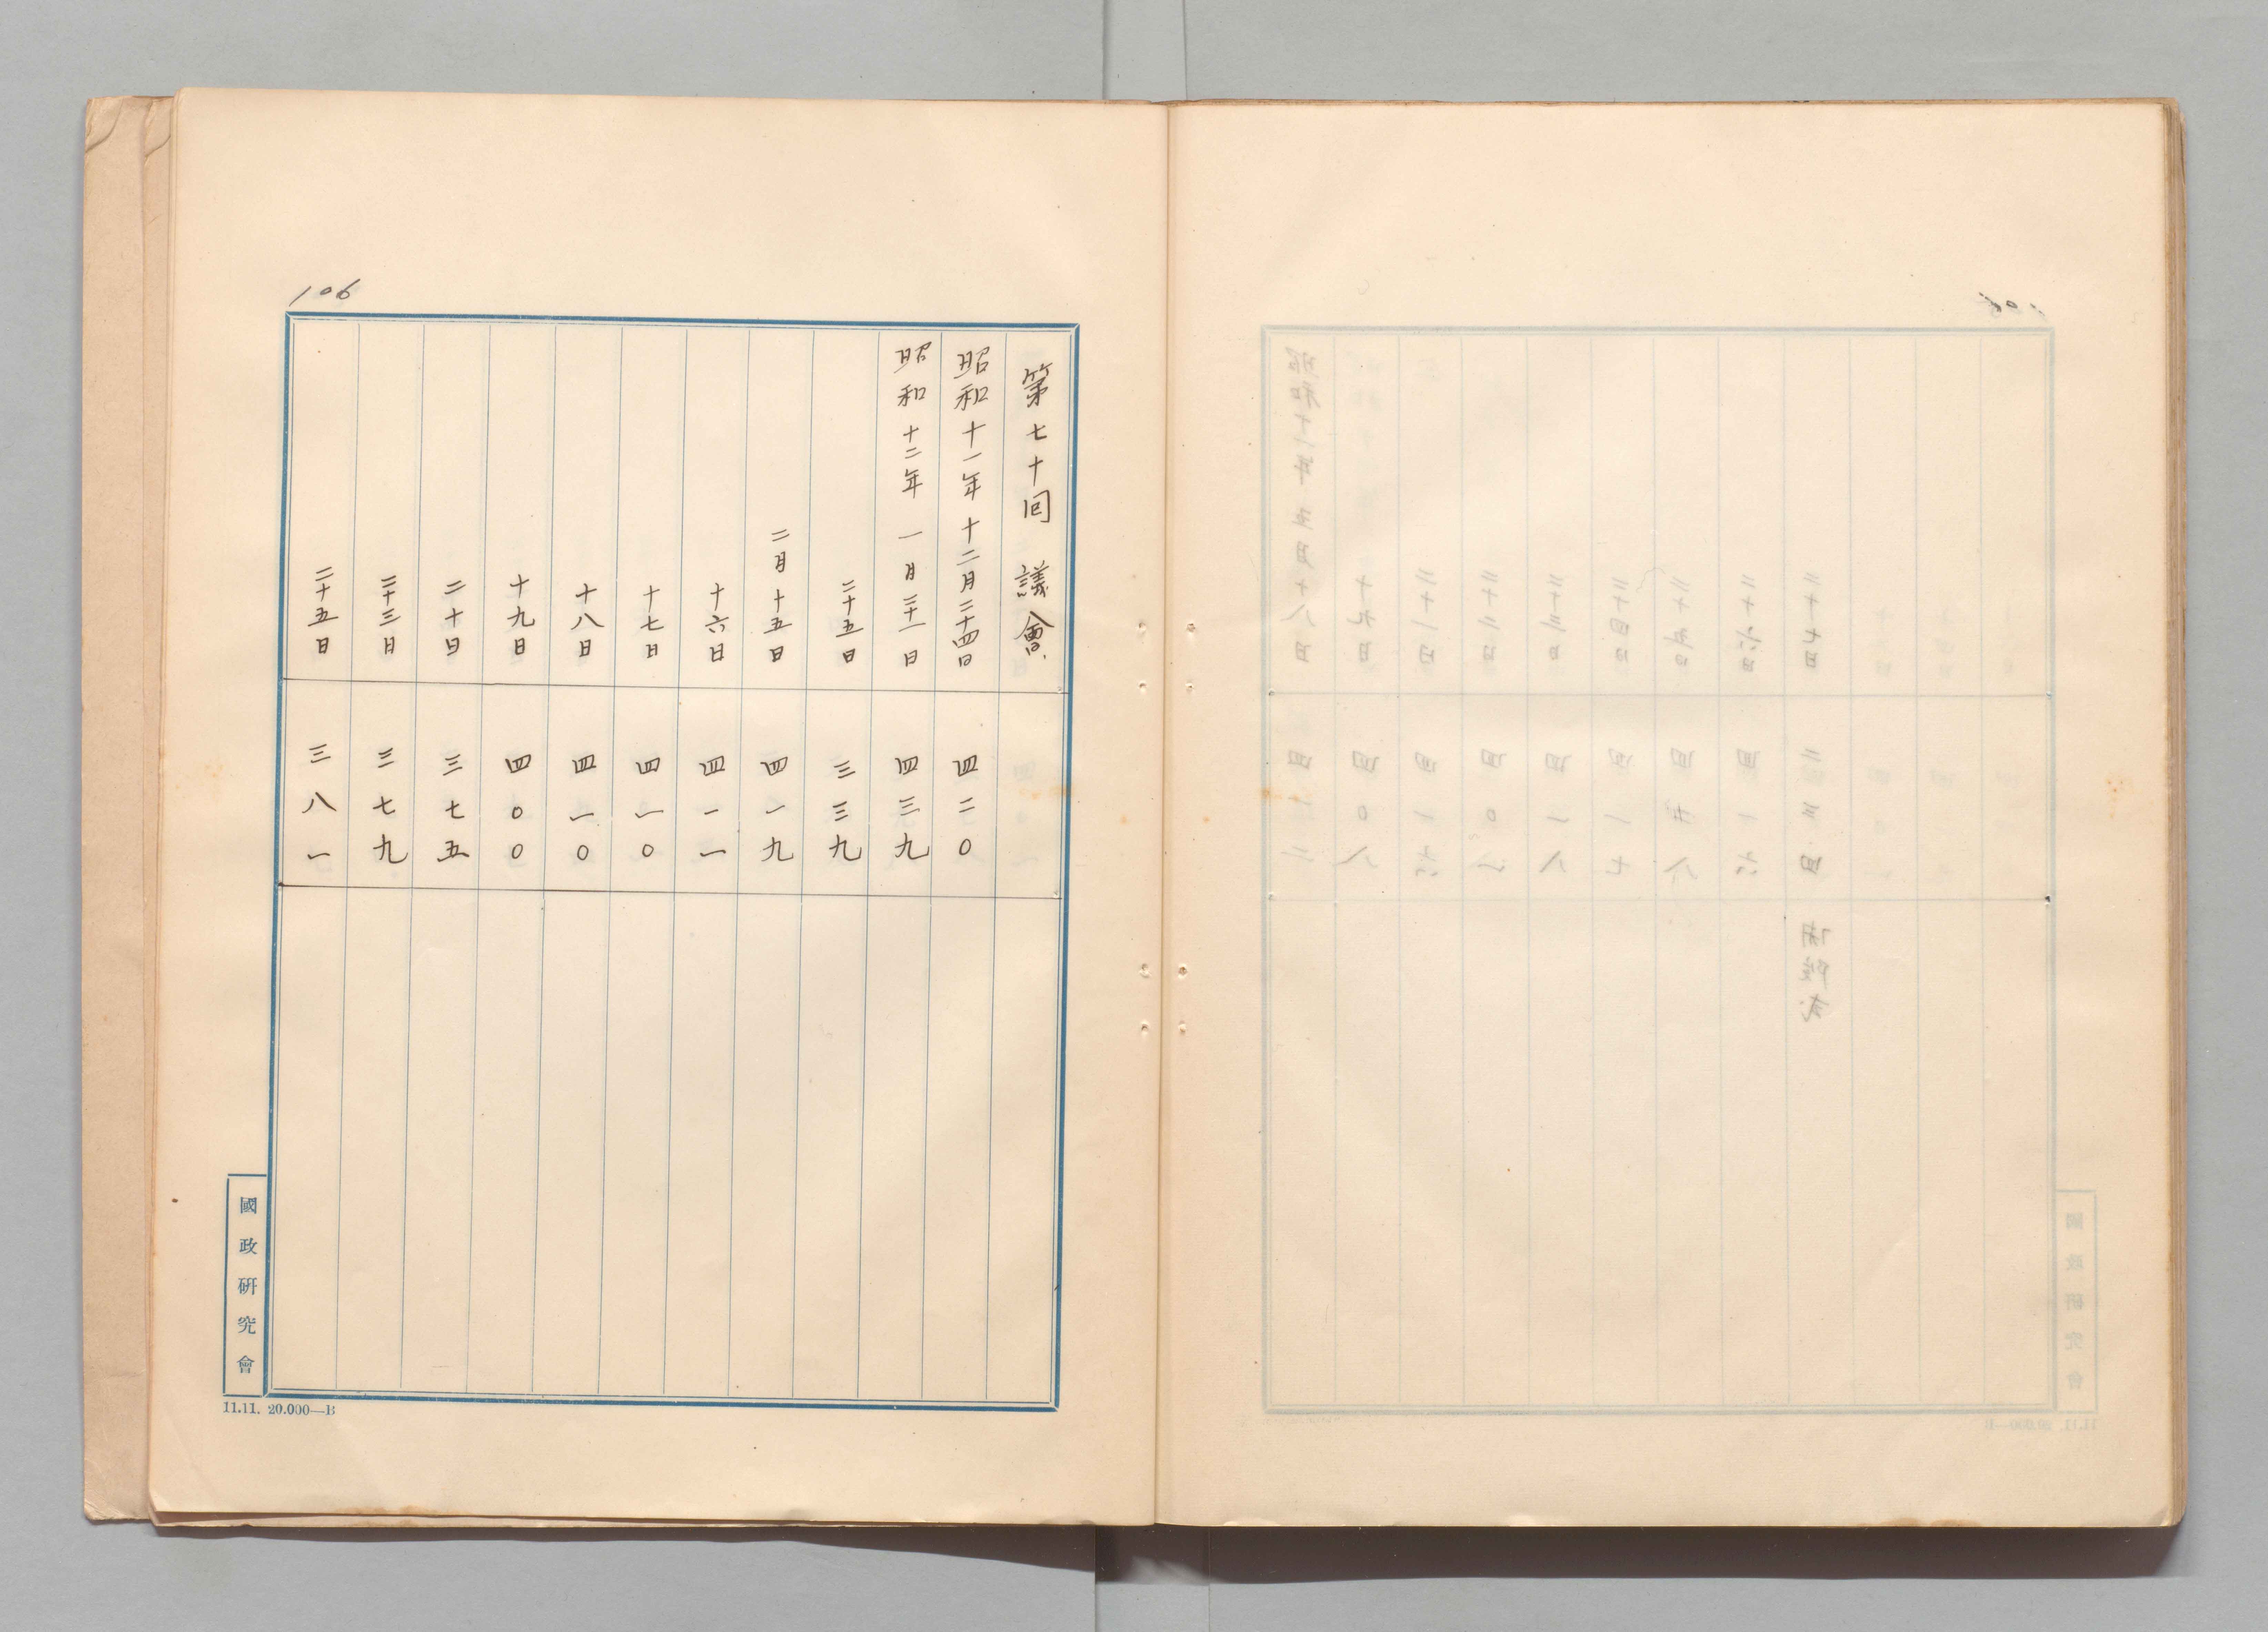 106
第七十回議會
昭和十一年十二月二十四日 四二〇
昭和十二年一月二十一日 四三九
二十五日 三三九
二月十五日 四一九
十六日 四一一
十七日 四一〇
十八日 四一〇
十九日 四〇〇
二十日 三七五
二十三日 三七九
二十五日 三八一
國政研究會
11.11. 20.000—B